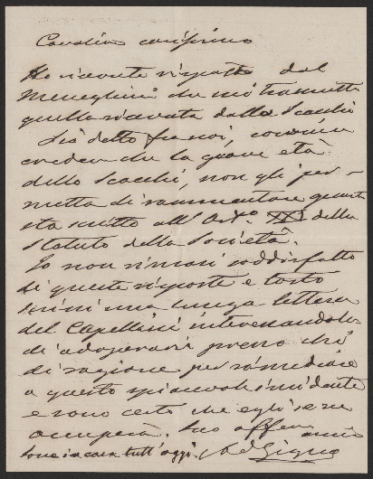 Cavaliere carissimo
Ho ricevuto risposta dal
Meneghini che mi trasmette
quella ricevuta dallo Scacchi
Sia detto fra noi, conviene
credere che la grave età
dello Scacchi, non gli per-
metta di rammentare quanto
sta scritto all'Arto XXI dello
Statuto della Società.
Io non rimasi soddisfatto
di queste risposte e tosto
scrissi una lunga lettera
al Capellini interessandolo
di adoperarsi presso chi
di ragione per rimediare
a questo spiacevole incidente
e sono certo che egli se ne
occuperà. Suo affmo amico
sono in casa tutt'oggi.